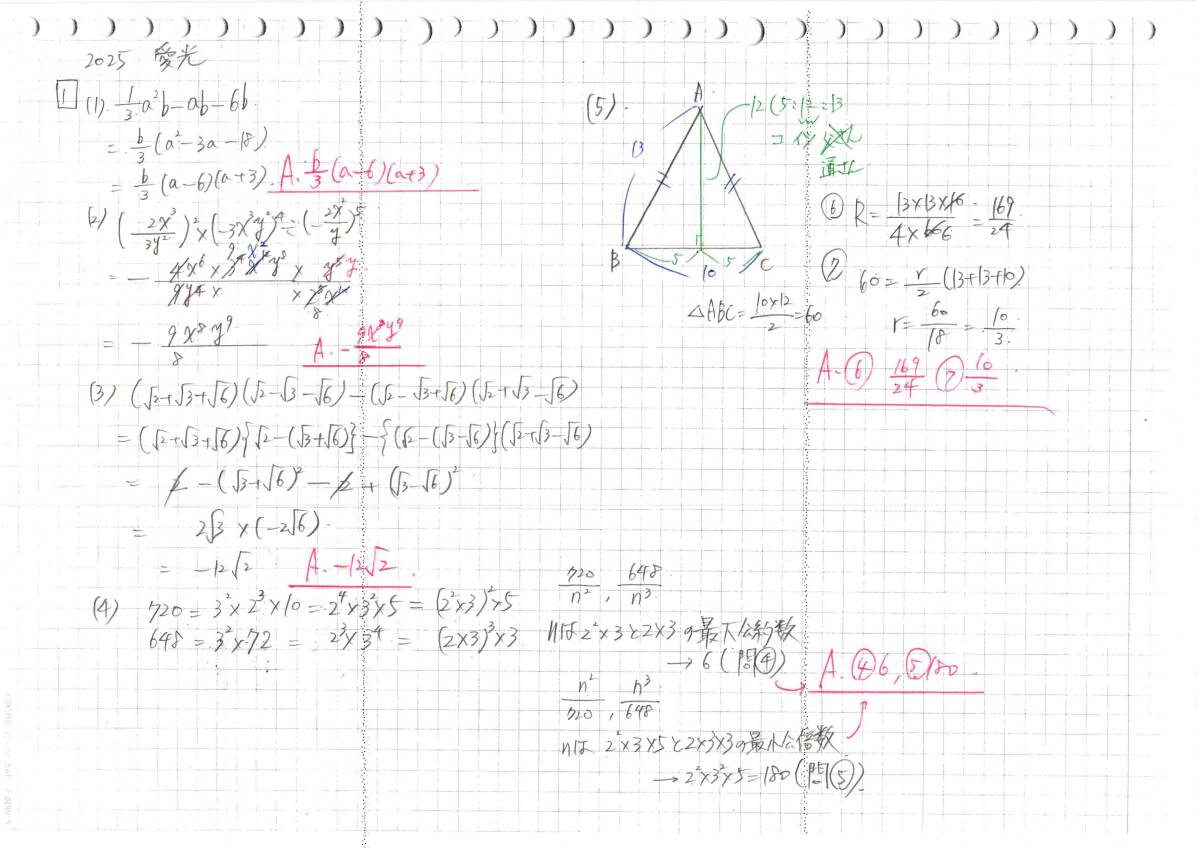 2025 愛光
1 (1) 1/3 a²b-ab-6b
= b/3 (a²-3a-18)
= b/3 (a-6)(a+3) A. b/3 (a-6)(a+3)
(2) (2x³/3y²)² × (-3x³y²)⁴ ÷ (-2x²/y)⁵
= - 9x⁸y⁹/8 A. - 9x⁸y⁹/8
(3) (√2+√3+√6)(√2-√3-√6)-(√2-√3+√6)(√2+√3-√6)
= (√2+√3+√6){√2-(√3+√6)}-{(√2-(√3-√6)}(√2+√3-√6)
= 2-(√3+√6)²-2+(√3-√6)²
= 2√3×(-2√6)
= -12√2 A. -12√2.
(4) 720 = 3²×2³×10 = 2⁴×3²×5 = (2²×3)²×5
648 = 3²×72 = 2³×3⁴ = (2×3)³×3
720/n² , 648/n³
nは2²×3と2×3の最大公約数
→ 6 (問④)
n²/720 , n³/648
nは 2²×3×5と2×3×3の最小公倍数
→ 2²×3²×5=180 (問⑤)
A. ④6, ⑤180.
(5).
A
12 (5:12:13
13
B
5
5
C
10
△ABC = 10×12/2 = 60
⑥ R = 13×13×10/4×60 = 169/24
⑦ 60 = r/2 (13+13+10)
r = 60/18 = 10/3
A. ⑥ 169/24 ⑦ 10/3